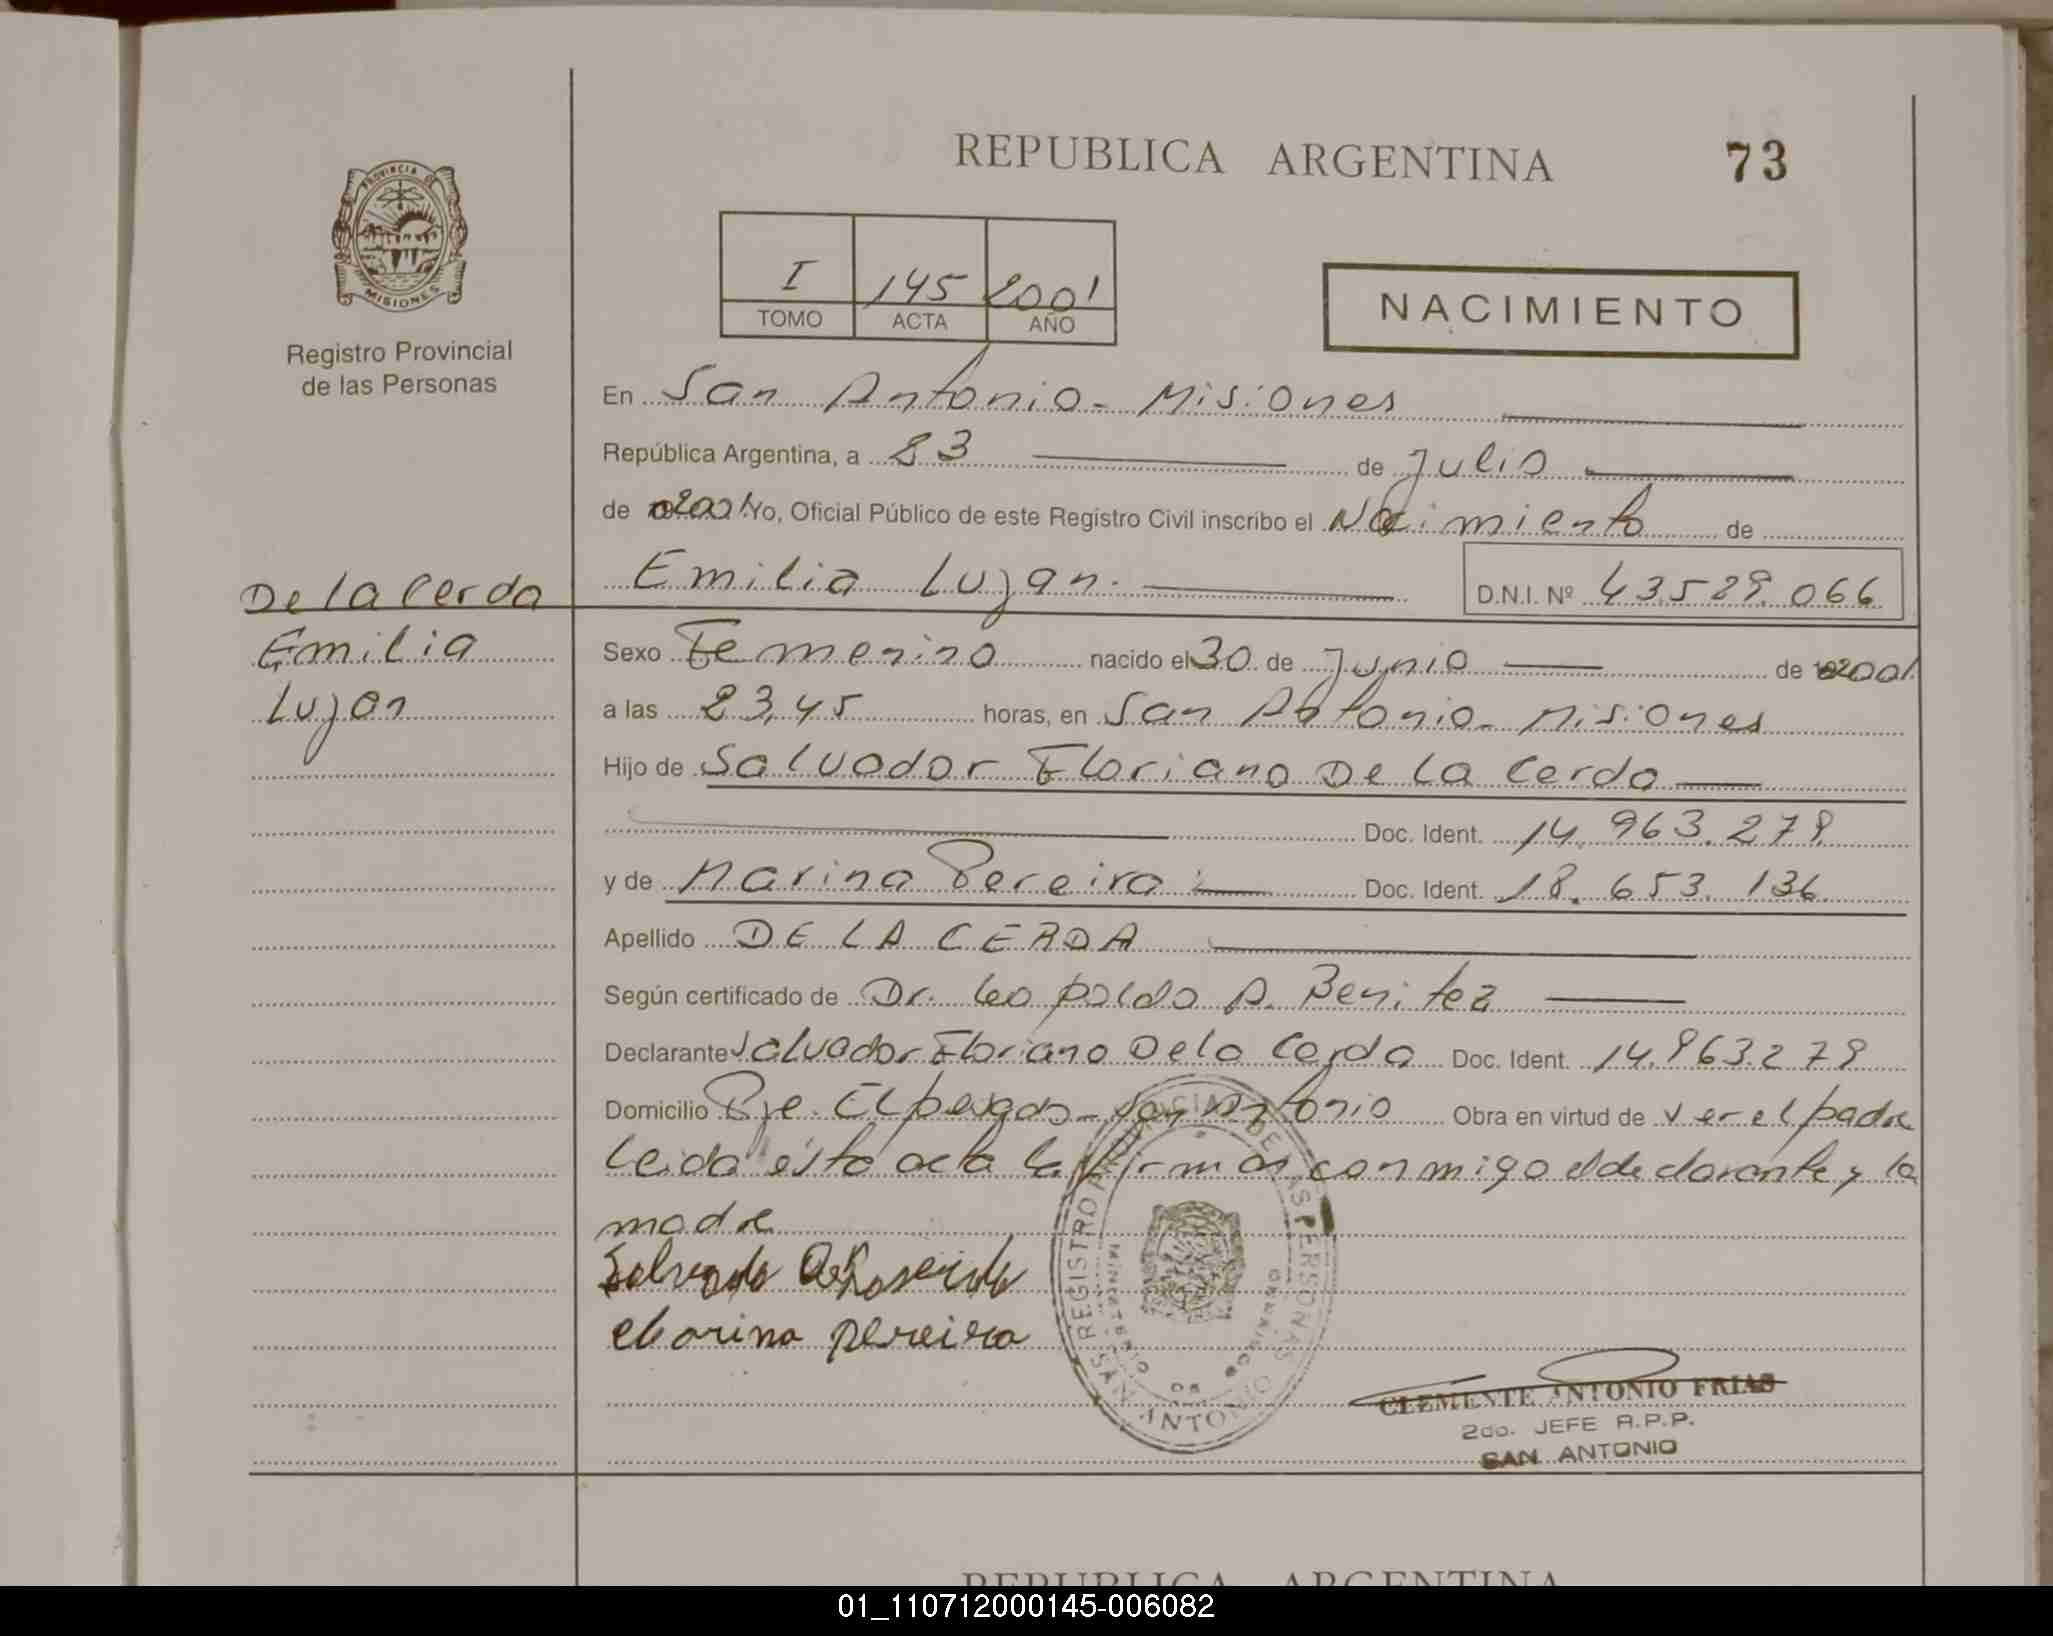 REPUBLICA ARGENTINA
73
PROVINCIA DE
MISIONES
Registro Provincial
de las Personas
I 145 2001
TOMO ACTA AÑO
NACIMIENTO
En San Antonio - Misiones
República Argentina, a 23 de Julio
de 2001 Yo, Oficial Público de este Registro Civil inscribo el Nacimiento de
Emilia Lujan. D.N.I. Nº 43.529.066
De la Cerda
Emilia
Lujan
Sexo Femenino nacido el 30 de Junio de 2001
a las 23,45 horas, en San Antonio - Misiones
Hijo de Salvador Floriano De la Cerda
Doc. Ident. 14.963.279
y de Marina Pereira Doc. Ident. 18.653.136
Apellido DE LA CERDA
Según certificado de Dr. Leopoldo A. Benitez
Declarante Salvador Floriano De la Cerda Doc. Ident. 14.963.279
Domicilio Pje. El San Antonio Obra en virtud de ver el padre
Leida ésta acta la firman conmigo el declarante y la
madre
Salvado
Marina pereira
REGISTRO PROVINCIAL DE LAS PERSONAS
MINISTERIO DE GOBIERNO
SAN ANTONIO
CLEMENTE ANTONIO FRIAS
2do. JEFE R.P.P.
SAN ANTONIO
REPUBLICA ARGENTINA
01_110712000145-006082